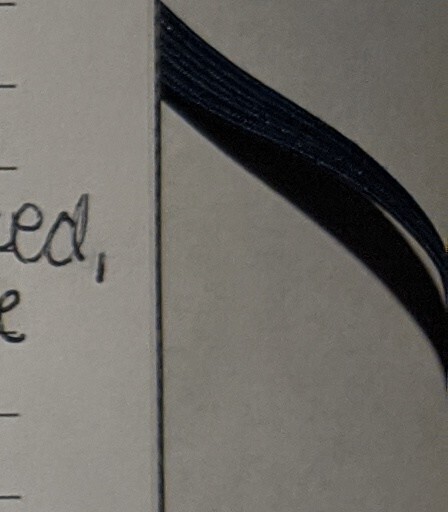 ed,
e